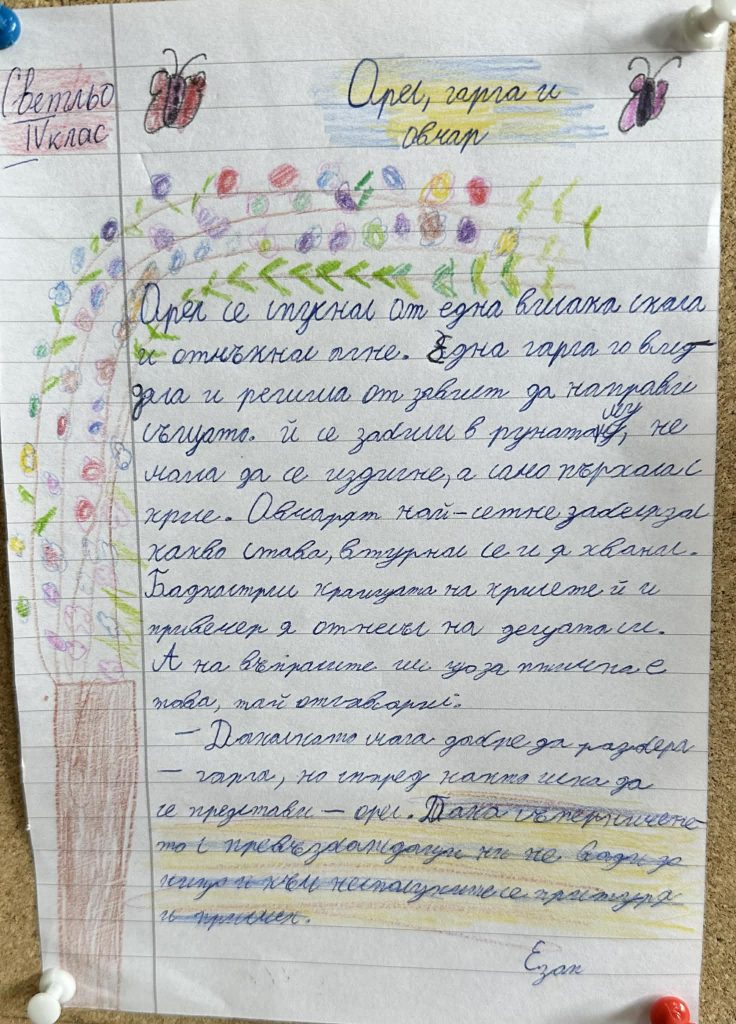 Светльо
IV клас
Орел, гарга и
овчар
Орел се спуснал от една висока скала
и отмъкнал агне. Една гарга го вид
дяла и решила от завист да направи
същото. Й се забили в руната му, не
могла да се издигне, а само пърхала с
криле. Овчарят най-сетне забелязал
какво става, втурнал се и я хванал.
Подкастрил краищата на крилете й и
привечер я отнесъл на децата си.
А на въпросите им що за птичка е
това, той отговорил:
– Доколкото мога добре да разбера
– гарга, но според както иска да
се представи – орел. Така съперничене
то с превъзхождащи ни не води до
нищо и към несполуките се притуря
и присмех.
Езоп